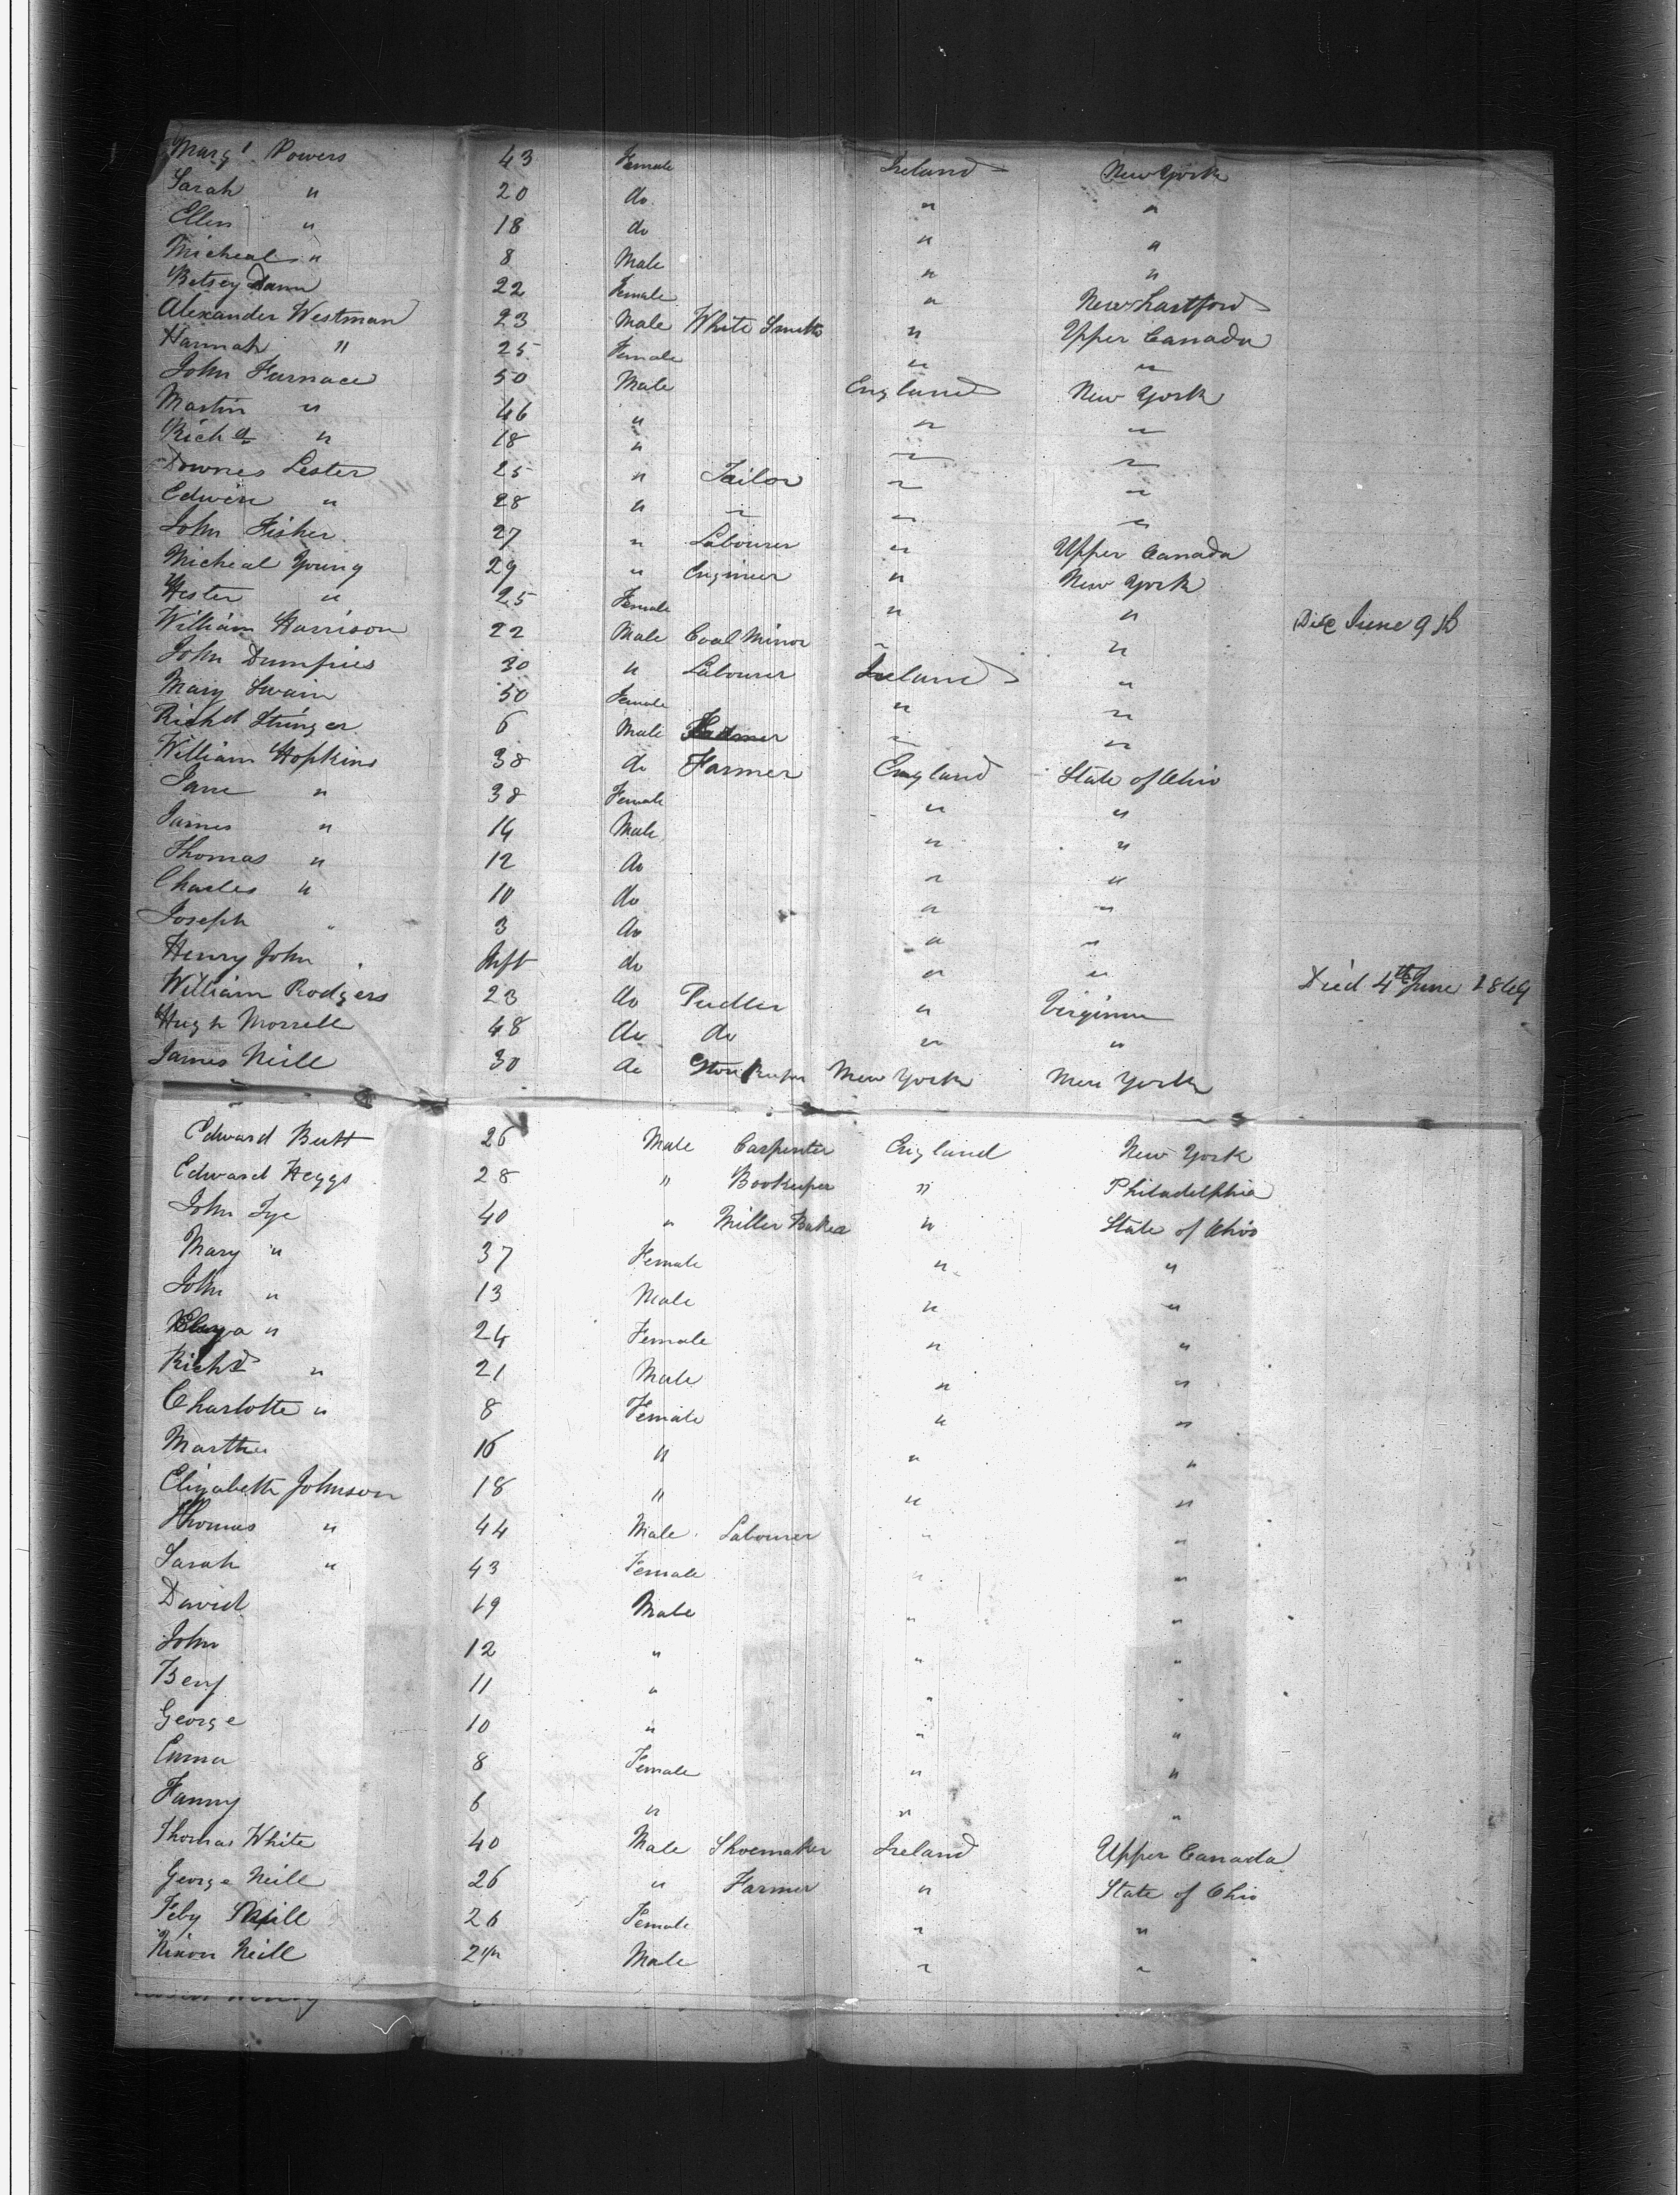 Margt. Powers 43 Female Ireland New York
Sarah " 20 do " "
Ellen " 18 do " "
Micheal " 8 Male " "
Betsey Dann 22 Female " New Hartford
Alexander Westman 23 Male White Smith " Upper Canada
Hannah " 25 Female " "
John Furnace 50 Male England New York
Martin " 46 " " "
Richd " 18 " " "
Downes Lester 25 " Tailor " "
Edwin " 28 " " " "
John Fisher 27 " Labourer " Upper Canada
Micheal Young 29 " Engineer " New York
Hester " 25 Female " " June 9th
William Harrison 22 Male Coal Minor " "
John Dumfries 30 " Labourer Ireland "
Mary Swain 50 Female " "
Richd Stringer 6 Male " "
William Hopkins 38 do Farmer England State of Ohio
Jane " 38 Female " "
James " 14 Male " "
Thomas " 12 do " "
Charles " 10 do " "
Joseph " 3 do " "
Henry John " Inft do " " Died 4th June 1864
William Rodgers 23 do Pudler " Virginia
Hugh Morrell 48 do do " "
James Neill 30 do Store Keeper New York New York
Edward Butt 26 Male Carpenter England New York
Edward Heggs 28 " Bookeeper " Philadelphia
John Tye 40 " Miller Baker " State of Ohio
Mary " 37 Female " "
John " 13 Male " "
" 24 Female " "
Richd " 21 Male " "
Charlotte " 8 Female " "
Martha 16 " " "
Elizabeth Johnson 18 " " "
Thomas " 44 Male Labourer " "
Sarah " 43 Female " "
David 19 Male " "
John 12 " " "
Benj 11 " " "
George 10 " " "
Emma 8 Female " "
Fanny 6 " " "
Thomas White 40 Male Shoemaker Ireland Upper Canada
George Neill 26 " Farmer " State of Ohio
Feby Neill 26 Female " "
Nixon Neill Male " "